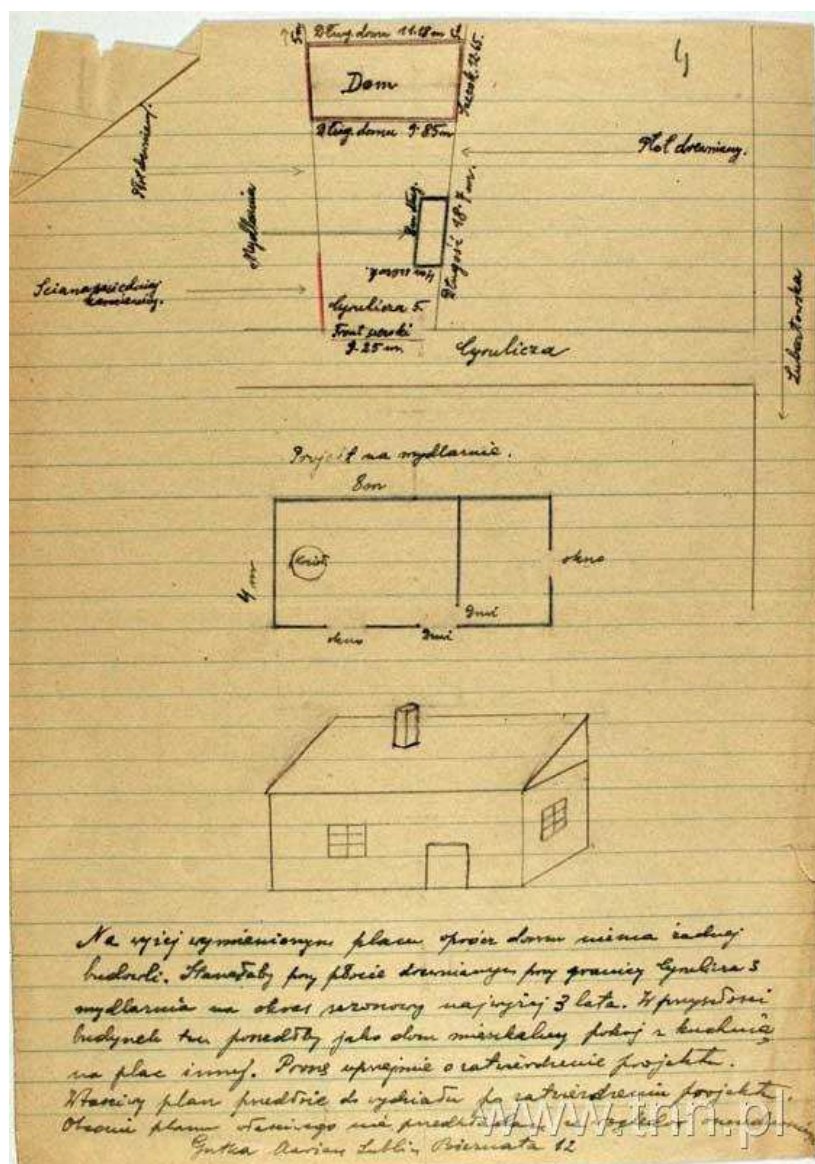 4
5m
Dług. domu 11.18 m
Dom
Szerok. 12.65.
Dług. domu 9.85 m
Płot drewniany.
Płot drewniany.
Mydlarnia
8m dług.
4m szerok.
Długość 18.7 m.
Ściana sąsiedniej
kamienicy.
Cyrulicza 5.
Front szeroki
9.25 m.
Cyrulicza
Lubartowska
Projekt na mydlarnię.
8 m
4 m
Kocioł
okno
Drzwi
okno
Drzwi
Na wyżej wymienionym placu oprócz domu niema żadnej
budowli. Stanęłaby przy płocie drewnianym przy granicy Cyrulicza 3
mydlarnia na okres sezonowy najwyżej 3 lata. W przyszłości
budynek ten jako dom mieszkalny pokój z kuchnią
na plac inny. Proszę uprzejmie o zatwierdzenie projektu.
Właściwy plan do wydziału po zatwierdzeniu projektu.
Obecnie planu właściwego nie
Lublin 12
www.tnn.pl